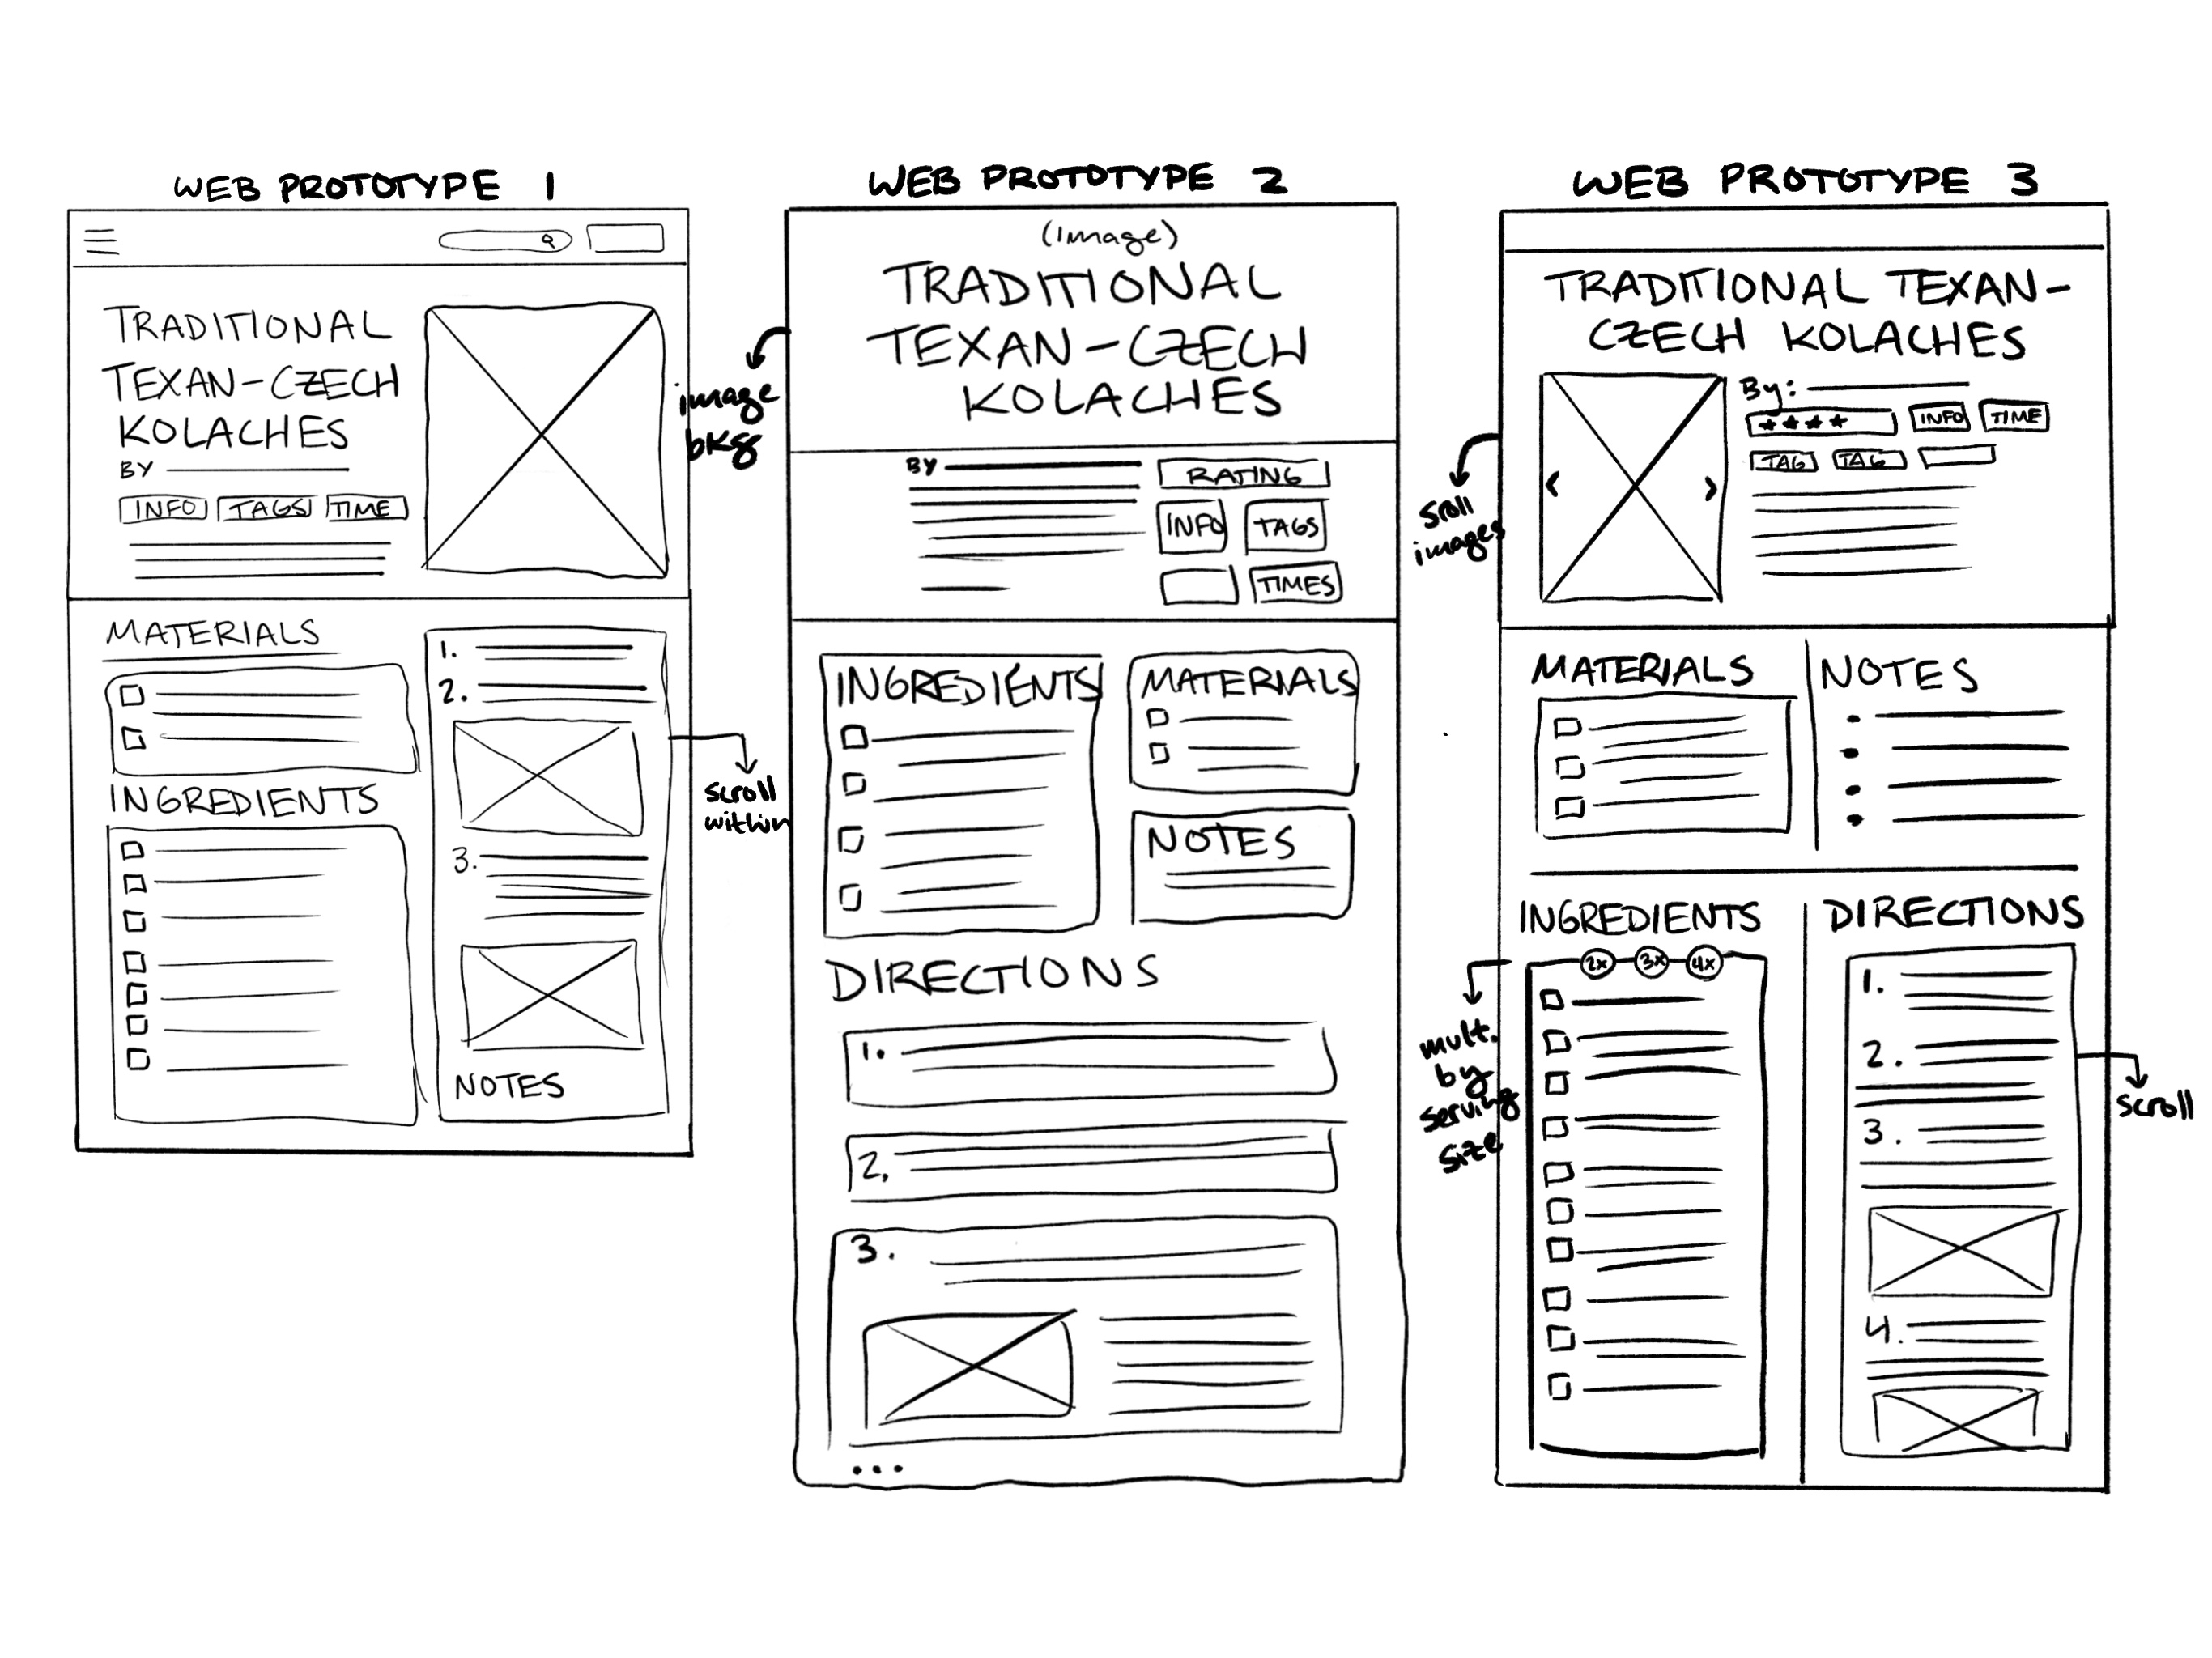 WEB PROTOTYPE 1
TRADITIONAL
TEXAN-CZECH
KOLACHES
BY
INFO TAGS TIME
MATERIALS
INGREDIENTS
1.
2.
3.
NOTES
scroll
within
WEB PROTOTYPE 2
(Image)
TRADITIONAL
TEXAN-CZECH
KOLACHES
image
bkg
BY
RATING
INFO TAGS
TIMES
INGREDIENTS
MATERIALS
NOTES
DIRECTIONS
1.
2.
3.
...
WEB PROTOTYPE 3
TRADITIONAL TEXAN-
CZECH KOLACHES
By:
★★★★ INFO TIME
TAG TAG
< >
Sroll
images
MATERIALS
NOTES
INGREDIENTS
2x 3x 4x
mult.
by
serving
size
DIRECTIONS
1.
2.
3.
4.
scroll